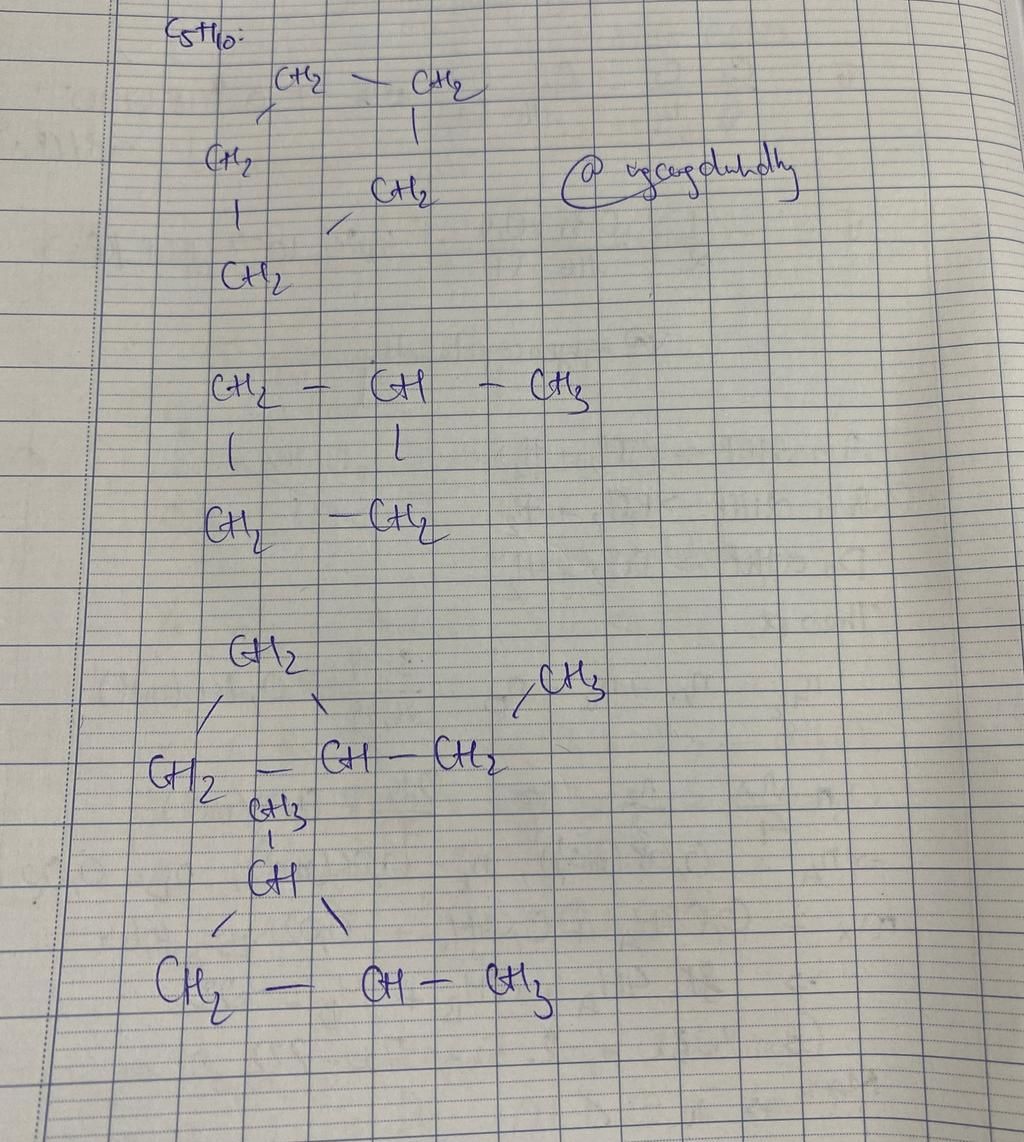 C5H10:
CH2 — CH2
/ |
CH2
@
CH2
| /
CH2
CH2 — CH — CH3
| |
CH2 — CH2
CH2
CH3
/ \ /
CH2 — CH — CH2
CH3
|
CH
/ \
CH2 — CH — CH3